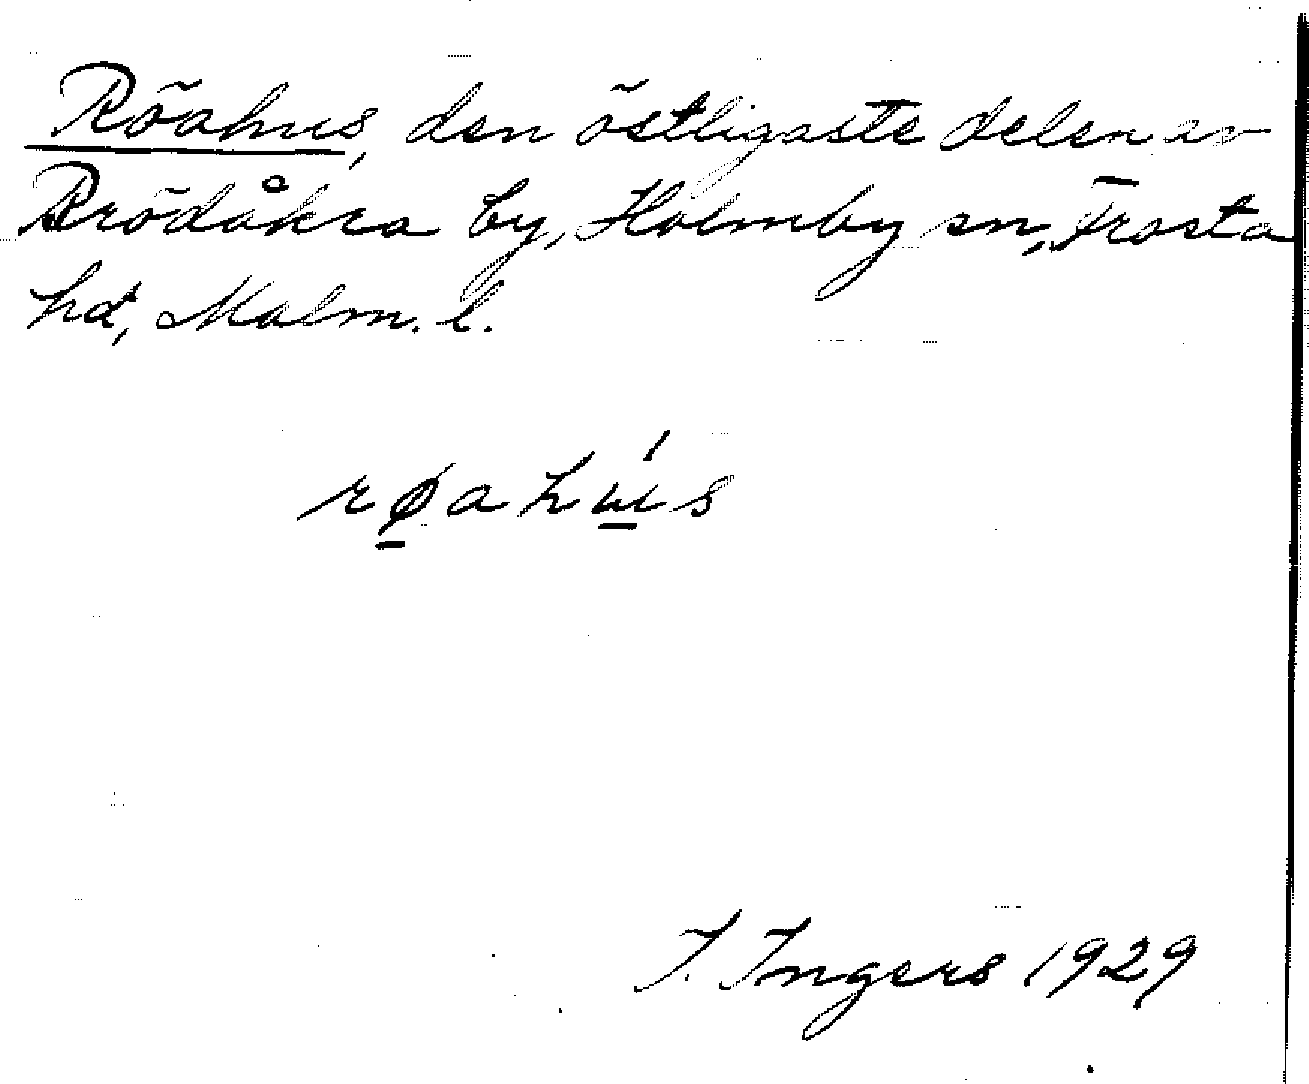 Röahus, den östligaste delen av
Brödåkra by, Holmby sn, Frosta
hd, Malm. l.
røahu̲ś
I. Ingers 1929